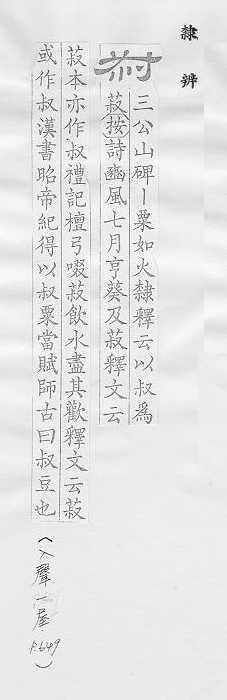 隸辨
叔
三公山碑丨粟如火隸釋云以叔為
菽(按)詩豳風七月亨葵及菽釋文云
菽本亦作叔禮記檀弓啜菽飲水盡其歡釋文云菽
或作叔漢書昭帝紀得以叔粟當賦師古曰叔豆也
(入聲一屋 P.649)